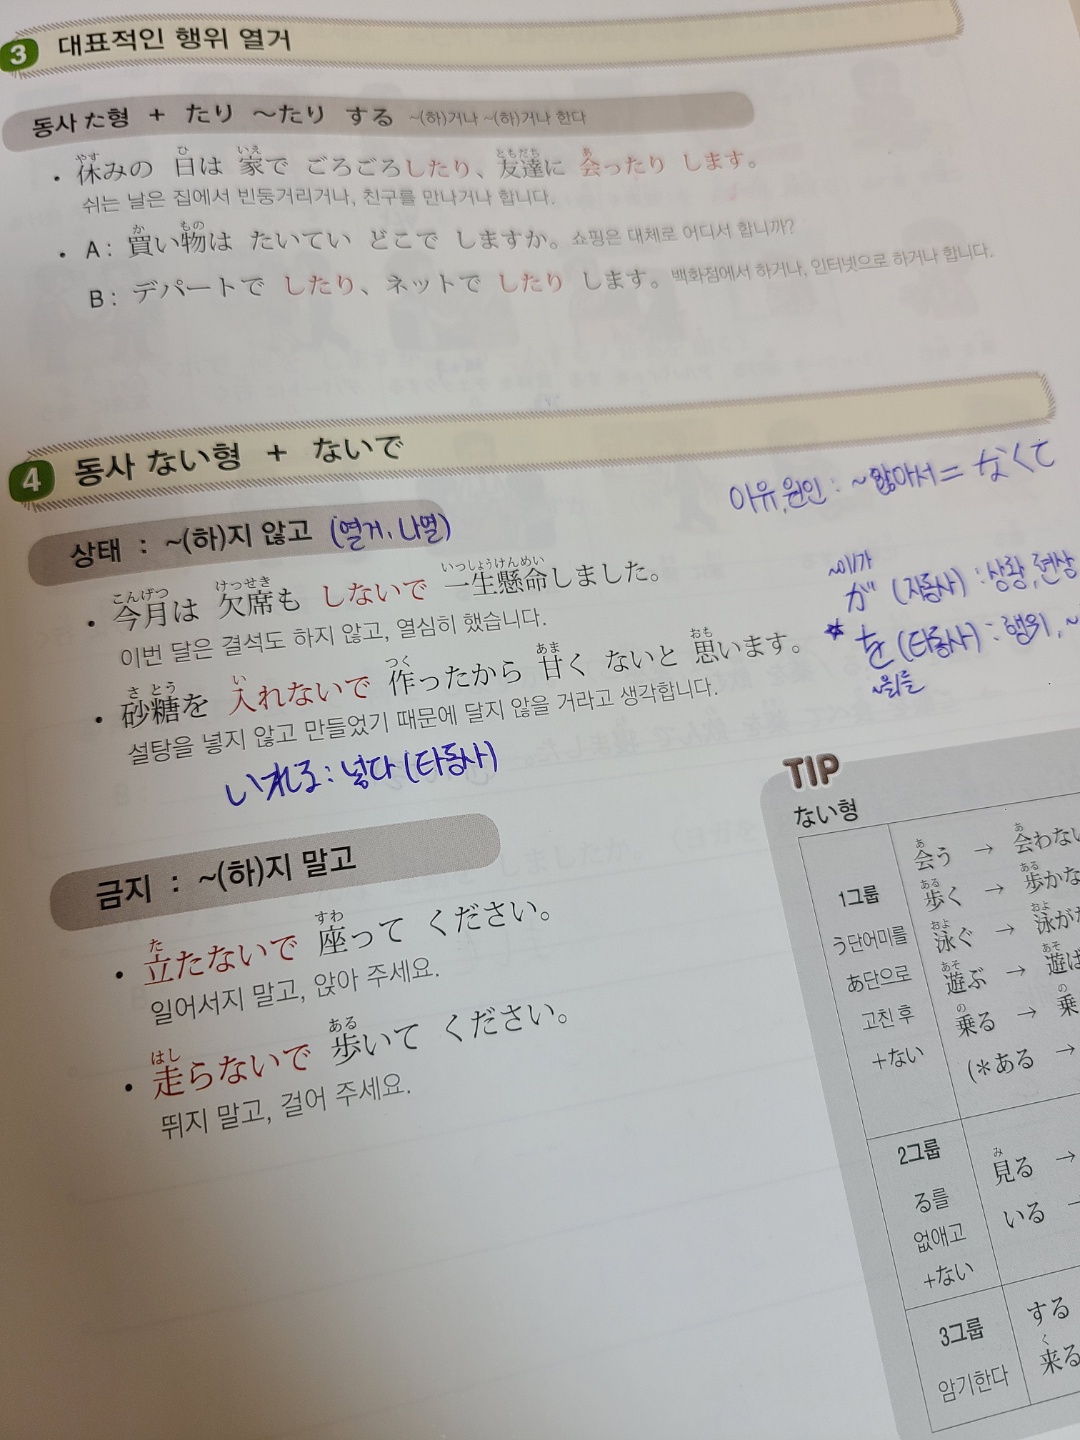 3 대표적인 행위 열거
동사 た형 + たり ~たり する ~(하)거나 ~(하)거나 한다
• 休みの 日は 家で ごろごろしたり、友達に 会ったり します。
やす ひ いえ ともだち あ
쉬는 날은 집에서 빈둥거리거나, 친구를 만나거나 합니다.
• A : 買い物は たいてい どこで しますか。 쇼핑은 대체로 어디서 합니까?
か もの
B : デパートで したり、ネットで したり します。 백화점에서 하거나, 인터넷으로 하거나 합니다.
4 동사 ない형 + ないで
아유, 원인 : ~않아서 = なくて
상태 : ~(하)지 않고 (열거, 나열)
• 今月は 欠席も しないで 一生懸命しました。
こんげつ けっせき いっしょうけんめい
이번 달은 결석도 하지 않고, 열심히 했습니다.
• 砂糖を 入れないで 作ったから 甘く ないと 思います。
さ とう い つく あま おも
설탕을 넣지 않고 만들었기 때문에 달지 않을 거라고 생각합니다.
いれる : 넣다 (타동사)
~이/가
が (자동사) : 상황, 현상
* を (타동사) : 행위, ~
~을/를
금지 : ~(하)지 말고
• 立たないで 座って ください。
た すわ
일어서지 말고, 앉아 주세요.
• 走らないで 歩いて ください。
はし ある
뛰지 말고, 걸어 주세요.
TIP
ない형
1그룹
う단어미를
あ단으로
고친 후
+ない
会う → 会わない
あ あ
歩く → 歩かな
ある ある
泳ぐ → 泳が
およ およ
遊ぶ → 遊ば
あそ あそ
乗る → 乗
の の
(*ある →
2그룹
る를
없애고
+ない
見る →
み
いる →
3그룹
암기한다
する
来る
く